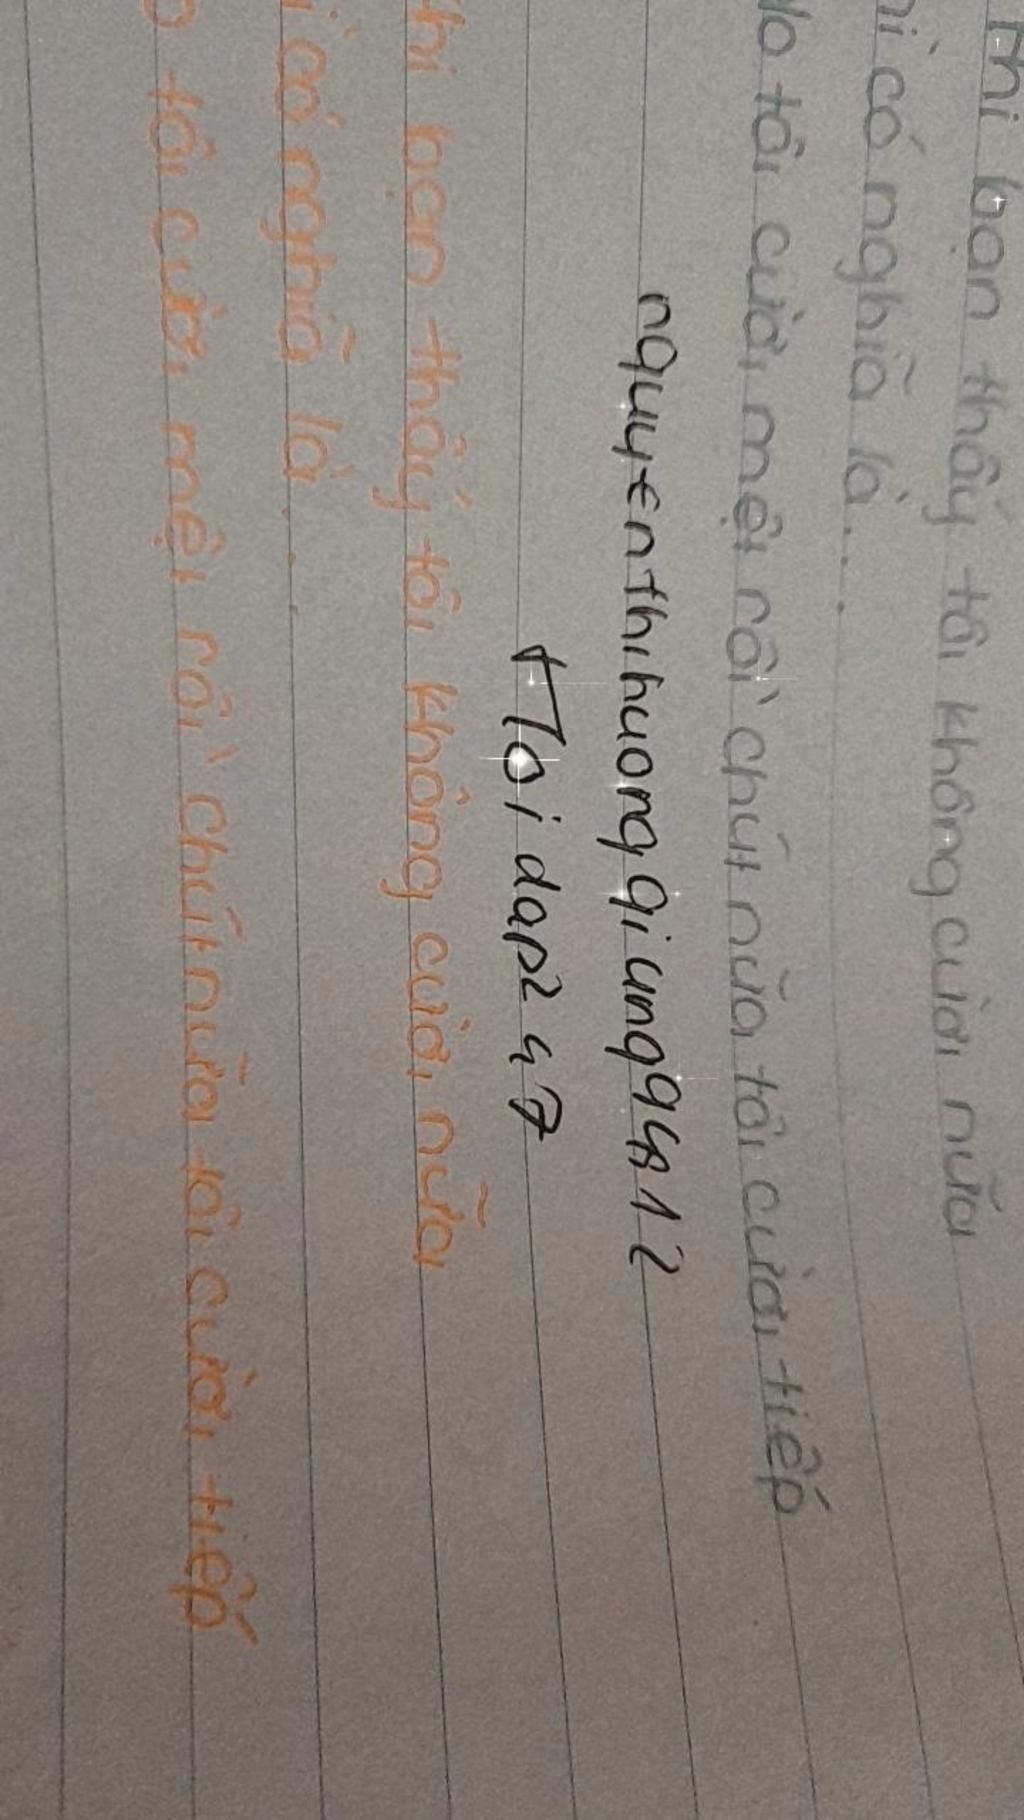 Khi bạn thấy tôi không cười nữa
thì có nghĩa là...
do tôi cười mệt rồi chút nữa tôi cười tiếp
nguyenthihuonggiang
Khi bạn thấy tôi không cười nữa
thì có nghĩa là...
do tôi cười mệt rồi chút nữa tôi cười tiếp